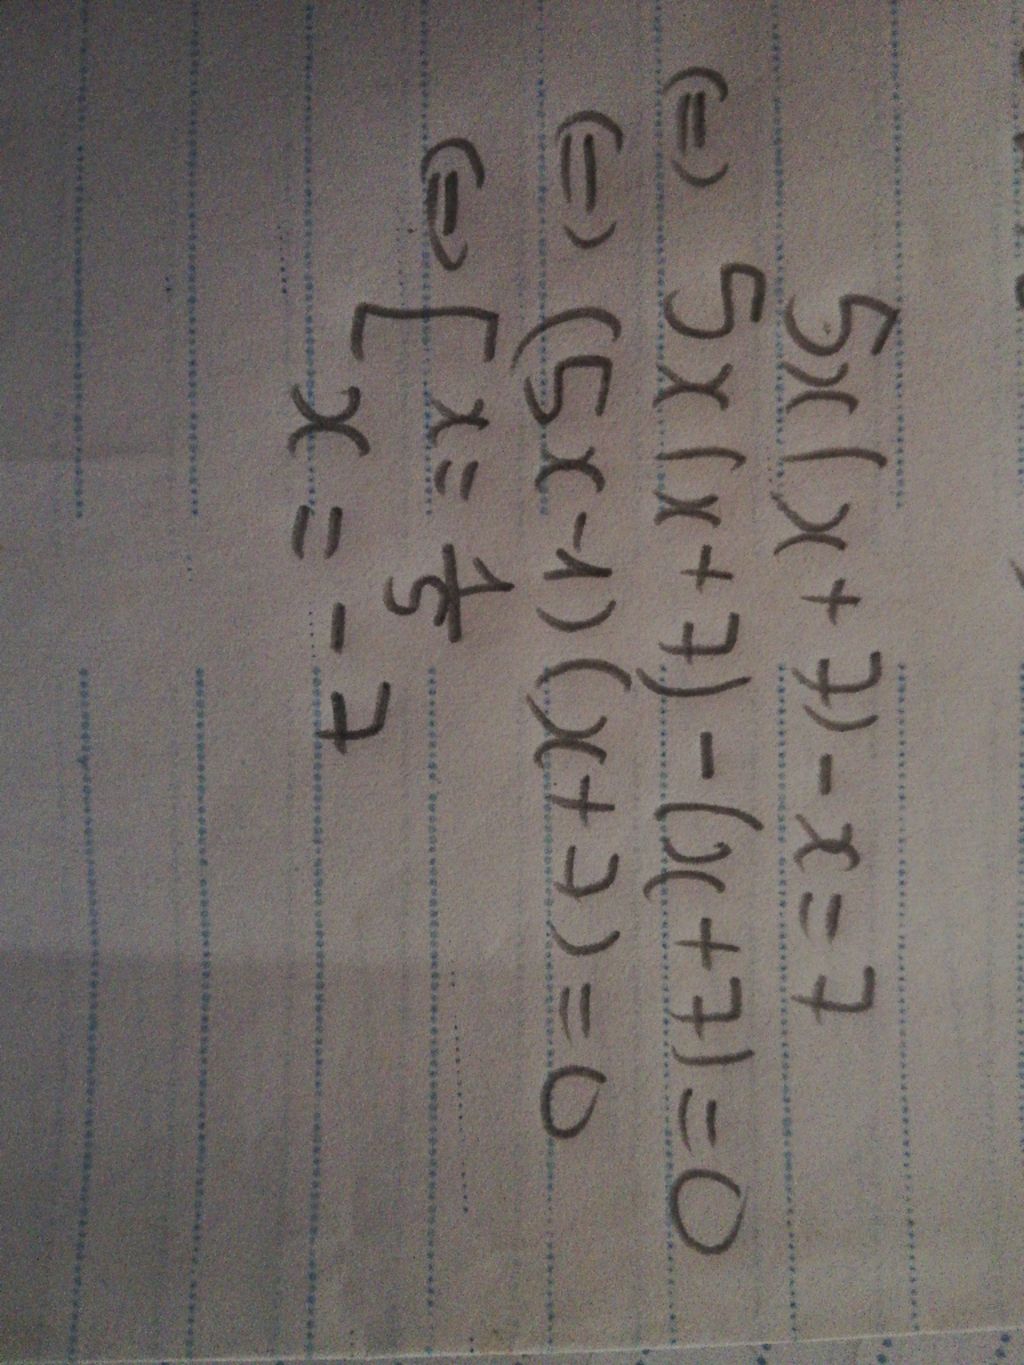 5x(x+7)-x=7
(=) 5x(x+7)-(x+7)=0
(=) (5x-1)(x+7)=0
(=) [ x = 1/5
x = -7